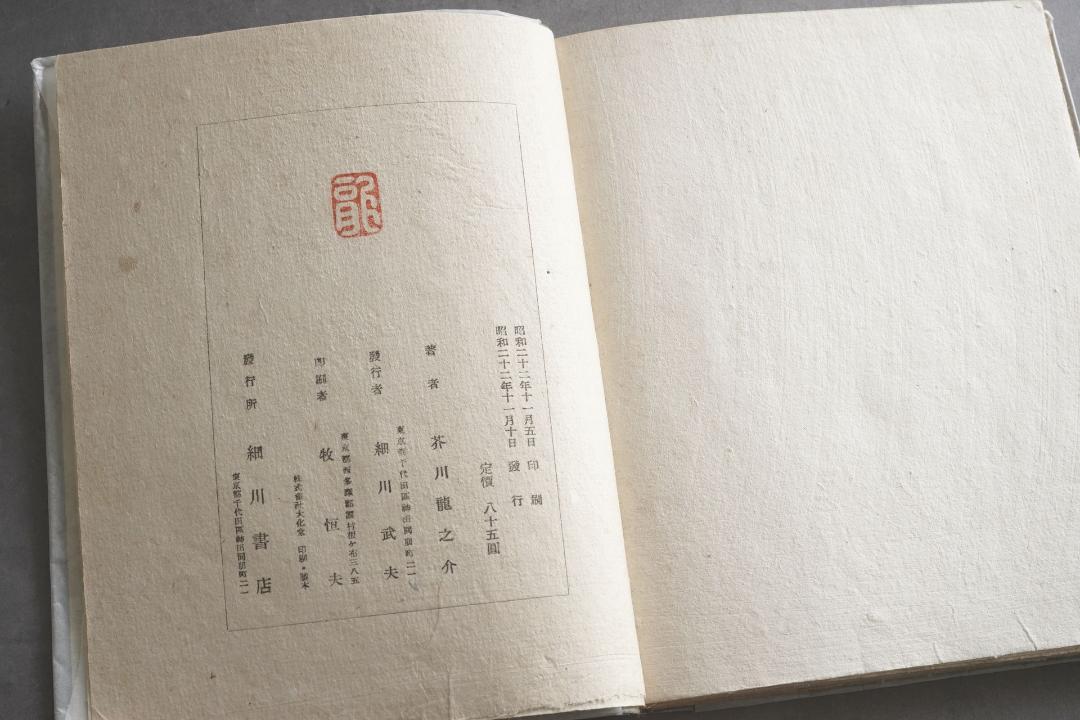 昭和二十二年十一月五日 印刷
昭和二十二年十一月十日 發行
定價 八十五圓
著者 芥川龍之介
東京都千代田區神田
發行者 細川武夫
東京都西多摩郡
印刷者 牧恒夫
株式會社大化堂 印刷・製本
發行所 細川書店
東京都千代田區神田